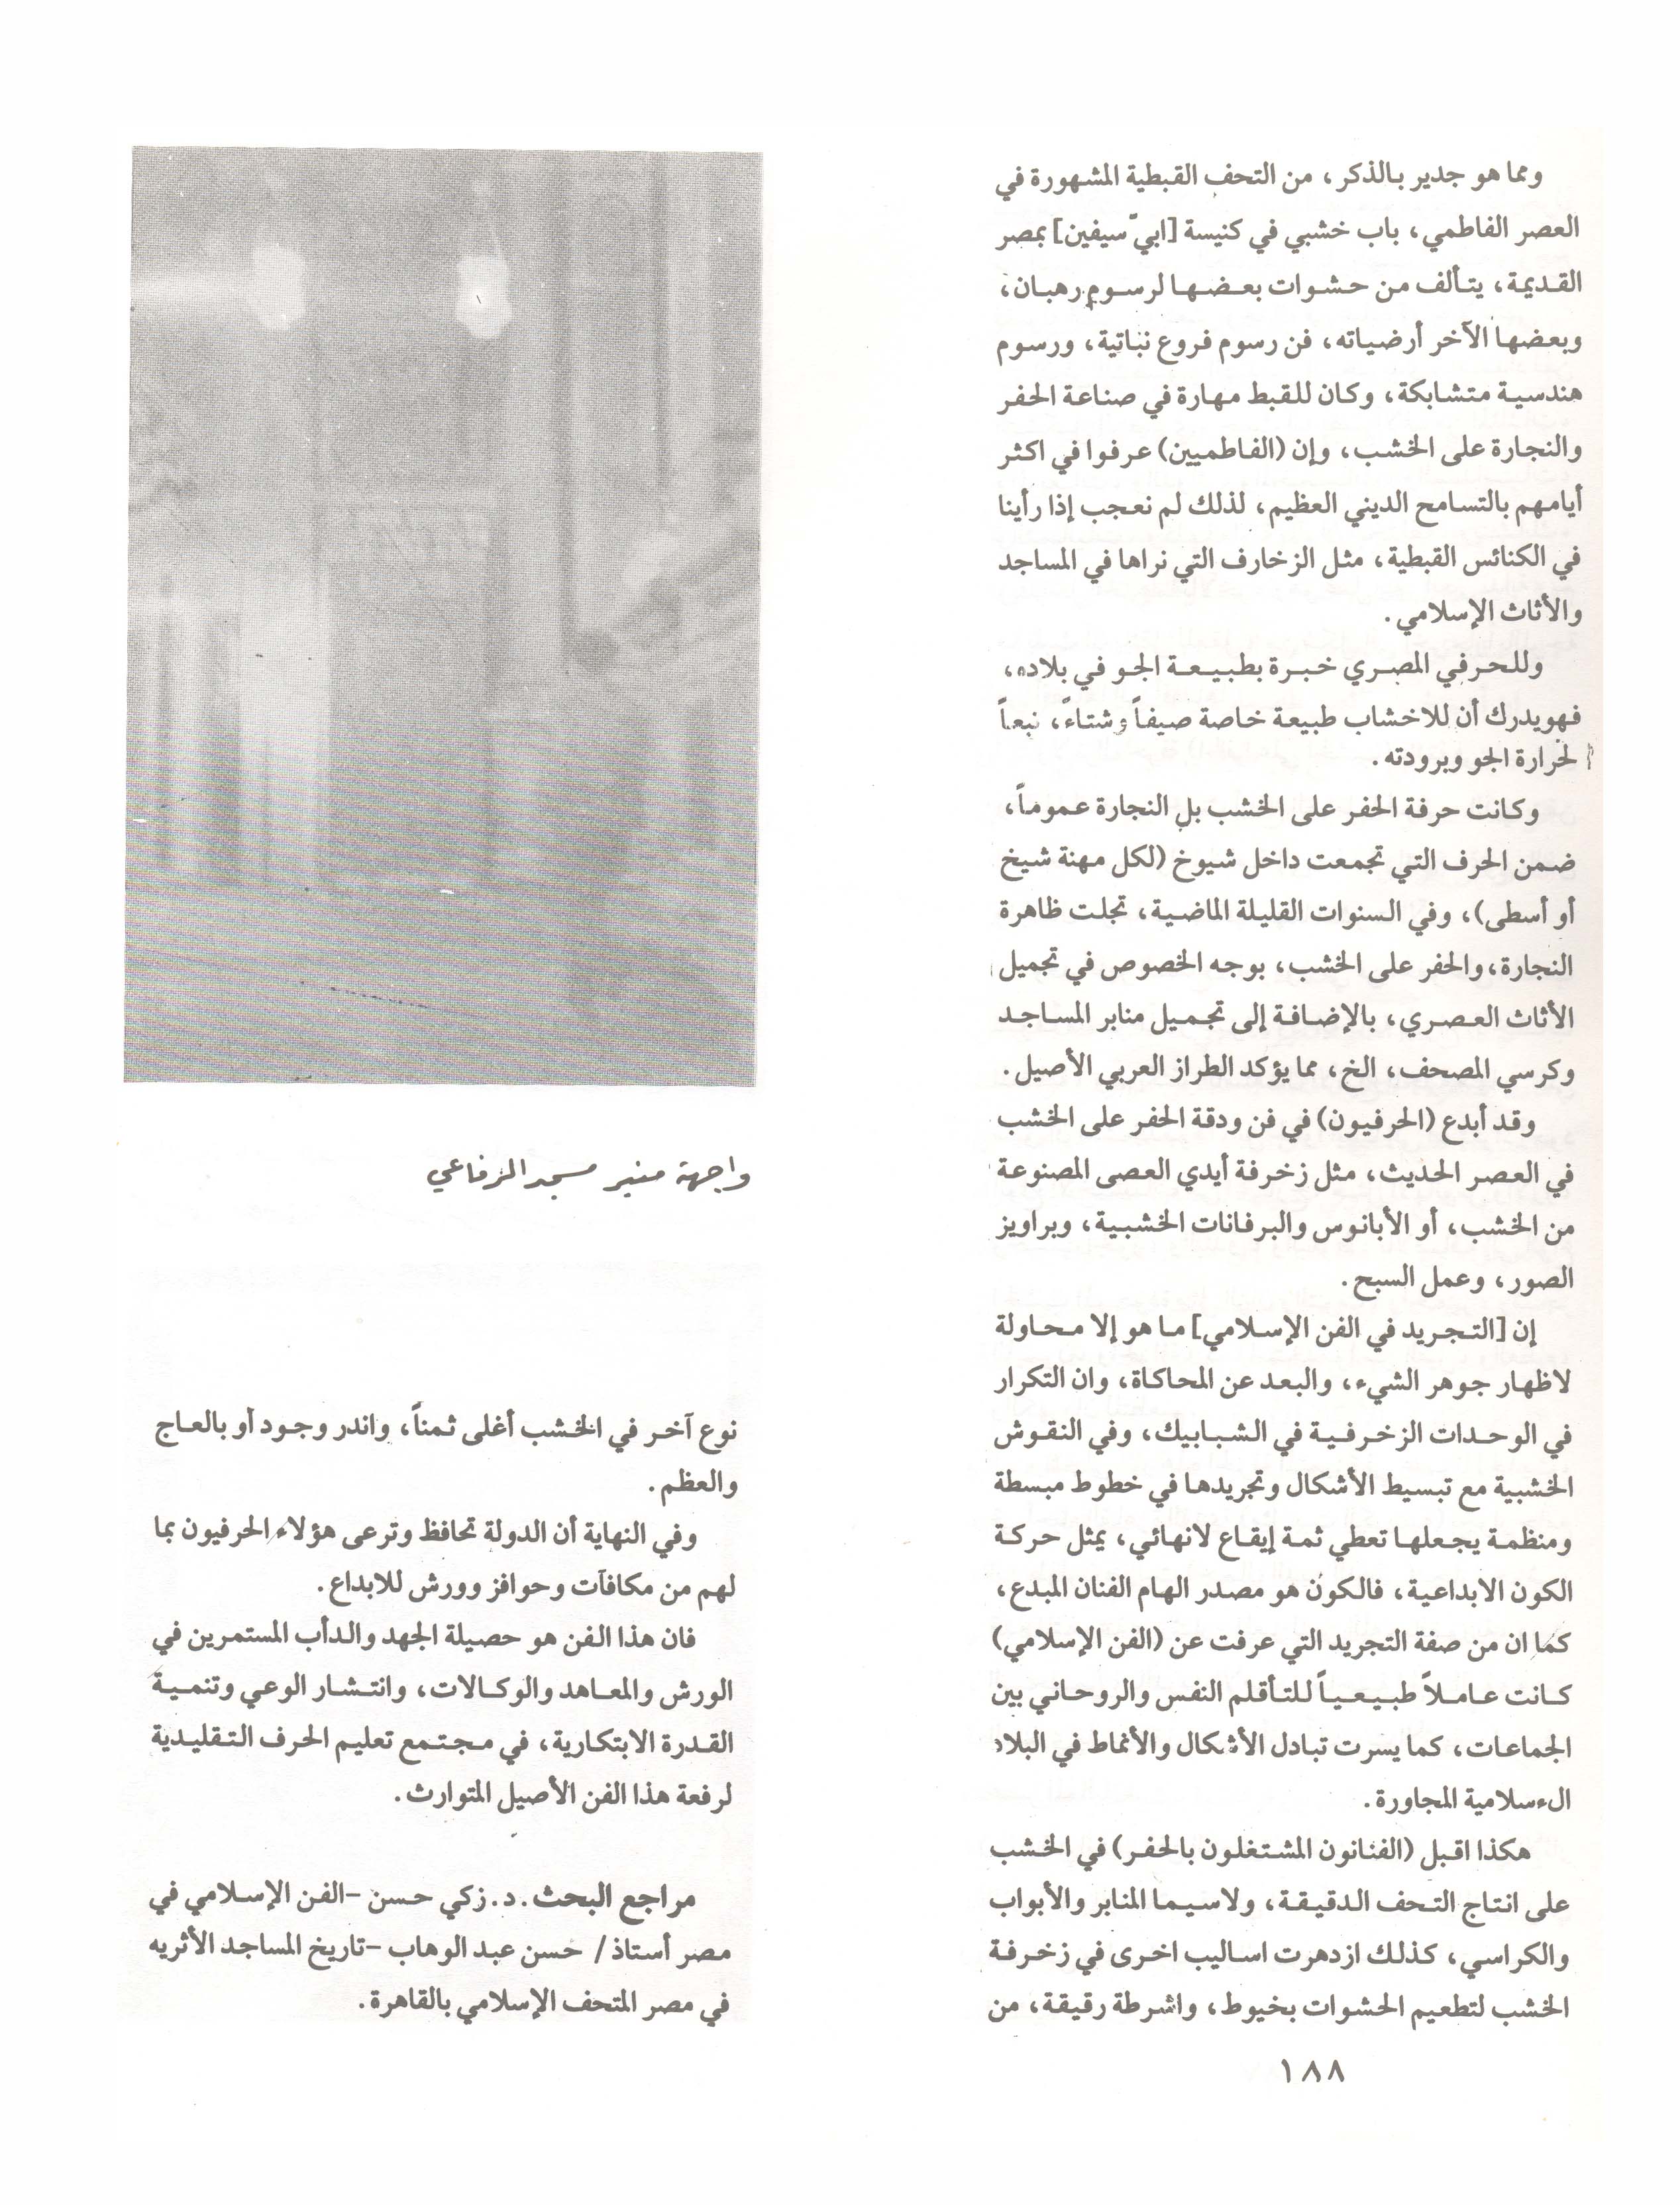 ومما هو جدير بالذكر، من التحف القبطية المشهورة في
العصر الفاطمي، باب خشبي في كنيسة [ابيّ سيفين] بمصر
القديمة، يتألف من حشوات بعضها لرسوم رهبان،
وبعضها الآخر أرضياته، فن رسوم فروع نباتية، ورسوم
هندسية متشابكة، وكان للقبط مهارة في صناعة الحفر
والنجارة على الخشب، وإن (الفاطميين) عرفوا في اكثر
أيامهم بالتسامح الديني العظيم، لذلك لم نعجب إذا رأينا
في الكنائس القبطية، مثل الزخارف التي نراها في المساجد
والأثاث الإسلامي.
وللحرفي المصري خبرة بطبيعة الجو في بلاده،
فهويدرك أن للاخشاب طبيعة خاصة صيفاً وشتاءً، نبعاً
لحرارة الجو وبرودته.
وكانت حرفة الحفر على الخشب بل النجارة عموماً،
ضمن الحرف التي تجمعت داخل شيوخ (لكل مهنة شيخ
أو أسطى)، وفي السنوات القليلة الماضية، تجلت ظاهرة
النجارة، والحفر على الخشب، بوجه الخصوص في تجميل
الأثاث العصري، بالإضافة إلى تجميل منابر المساجد
وكرسي المصحف، الخ، مما يؤكد الطراز العربي الأصيل.
وقد أبدع (الحرفيون) في فن ودقة الحفر على الخشب
في العصر الحديث، مثل زخرفة أيدي العصى المصنوعة
من الخشب، أو الأبانوس والبرفانات الخشبية، وبراويز
الصور، وعمل السبح.
إن [التجريد في الفن الإسلامي] ما هو إلا محاولة
لاظهار جوهر الشيء، والبعد عن المحاكاة، وان التكرار
في الوحدات الزخرفية في الشبابيك، وفي النقوش
الخشبية مع تبسيط الأشكال وتجريدها في خطوط مبسطة
ومنظمة يجعلها تعطي ثمة إيقاع لانهائي، يمثل حركة
الكون الابداعية، فالكون هو مصدر الهام الفنان المبدع،
كما ان من صفة التجريد التي عرفت عن (الفن الإسلامي)
كانت عاملاً طبيعياً للتأقلم النفس والروحاني بين
الجماعات، كما يسرت تبادل الأشكال والأنماط في البلاد
الءسلامية المجاورة.
هكذا اقبل (الفنانون المشتغلون بالحفر) في الخشب
على انتاج التحف الدقيقة، ولاسيما المنابر والأبواب
والكراسي، كذلك ازدهرت اساليب اخرى في زخرفة
الخشب لتطعيم الحشوات بخيوط، واشرطة رقيقة، من
واجهة منبر مسجد الرفاعي
نوع آخر في الخشب أغلى ثمناً، واندر وجود أو بالعاج
والعظم.
وفي النهاية أن الدولة تحافظ وترعى هؤلاء الحرفيون بما
لهم من مكافآت وحوافز وورش للابداع.
فان هذا الفن هو حصيلة الجهد والدأب المستمرين في
الورش والمعاهد والوكالات، وانتشار الوعي وتنمية
القدرة الابتكارية، في مجتمع تعليم الحرف التقليدية
لرفعة هذا الفن الأصيل المتوارث.
مراجع البحث. د. زكي حسن -الفن الإسلامي في
مصر أستاذ/ حسن عبد الوهاب -تاريخ المساجد الأثريه
في مصر المتحف الإسلامي بالقاهرة.
١٨٨